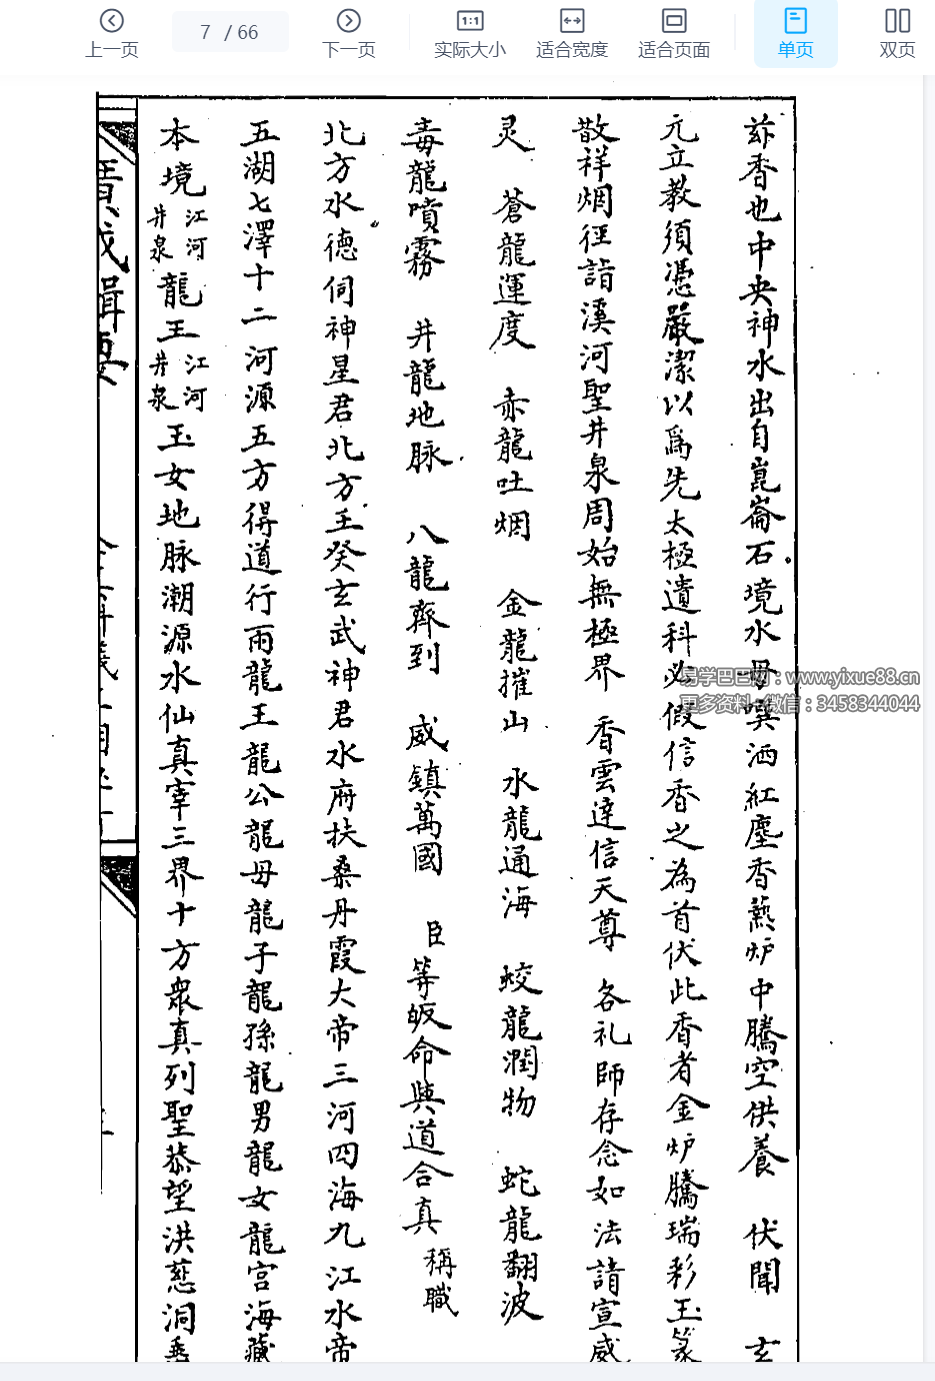 上一页
7 / 66
下一页
实际大小
适合宽度
适合页面
单页
双页
茲香也中央神水出自崑崙石境水母噀洒紅塵香爇炉中騰空供養 伏聞 玄
元立教須憑嚴潔以爲先太極遺科必假信香之為首伏此香者金炉騰瑞彩玉篆
散祥烟徑詣溪河聖井泉周始無極界 香雲達信天尊 各礼師存念如法請宣威
灵 蒼龍運度 赤龍吐烟 金龍摧山 水龍通海 蛟龍潤物 蛇龍翻波
毒龍噴霧 井龍地脉 八龍齊到 威鎮萬國 臣等皈命與道合真 稱職
北方水德伺神星君北方壬癸玄武神君水府扶桑丹霞大帝三河四海九江水帝
五湖七澤十二河源五方得道行雨龍王龍公龍母龍子龍孫龍男龍女龍宮海藏
本境江河井泉龍王江河井泉玉女地脉潮源水仙真宰三界十方眾真列聖恭望洪慈洞垂
易学巴巴网：www.yixue88.cn
更多资料+微信：3458344044